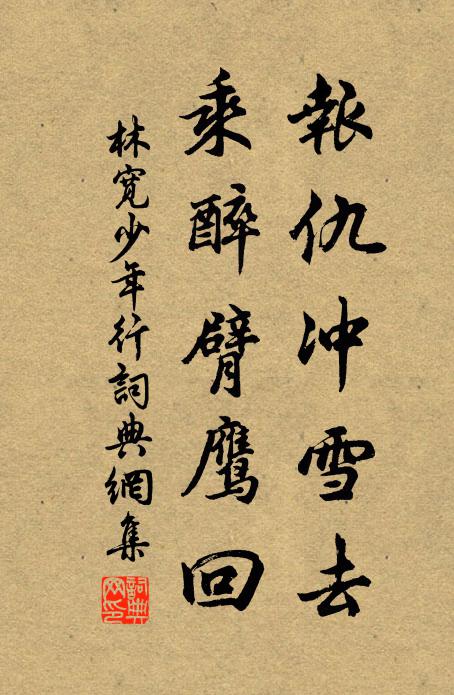 報仇冲雪去
乘醉臂鹰回
林寬少年行詞典網集
詞典網印